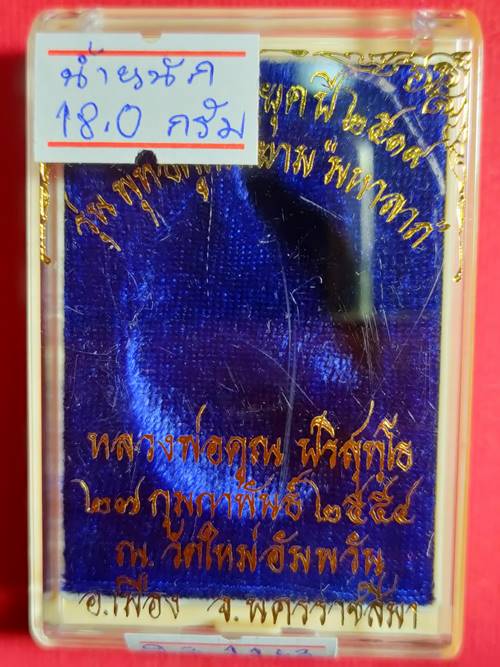 น้ำหนัก
18.0 กรัม
ยุค ปี ๒๕๑๗
รุ่น
มหาลาภ
หลวงพ่อคูณ ปริสุทฺโธ
๒๗ กุมภาพันธ์ ๒๕๕๔
ณ. วัดใหม่อัมพวัน
อ.เมือง จ.นครราชสีมา